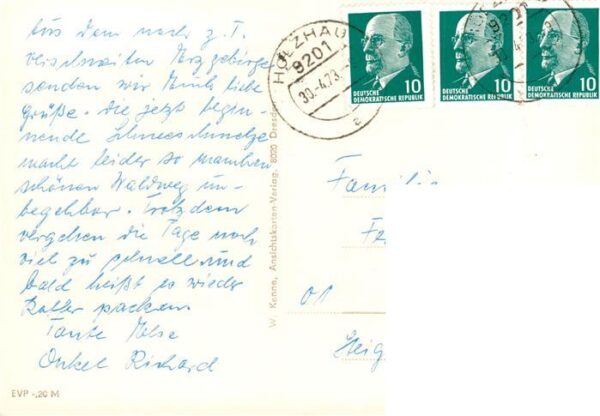 Aus dem noch z. T.
verschneiten Erzgebirge
senden wir Euch liebe
Grüße. Die jetzt begin-
nende Schneeschmelze
macht leider so manchen
schönen Waldweg un-
begehbar. Trotzdem
vergehen die Tage noch
viel zu schnell und
bald heißt es wieder
Koffer packen.
Tante Ilse
Onkel Richard
EVP -,20 M
W. Kenne, Ansichtskarten-Verlag, 8020 Dresden
HOLZHAU
9201
30.-4.73.
a
10
DEUTSCHE
DEMOKRATISCHE REPUBLIK
10
DEUTSCHE
DEMOKRATISCHE REPUBLIK
10
DEUTSCHE
DEMOKRATISCHE REPUBLIK
Famili
Fe
01